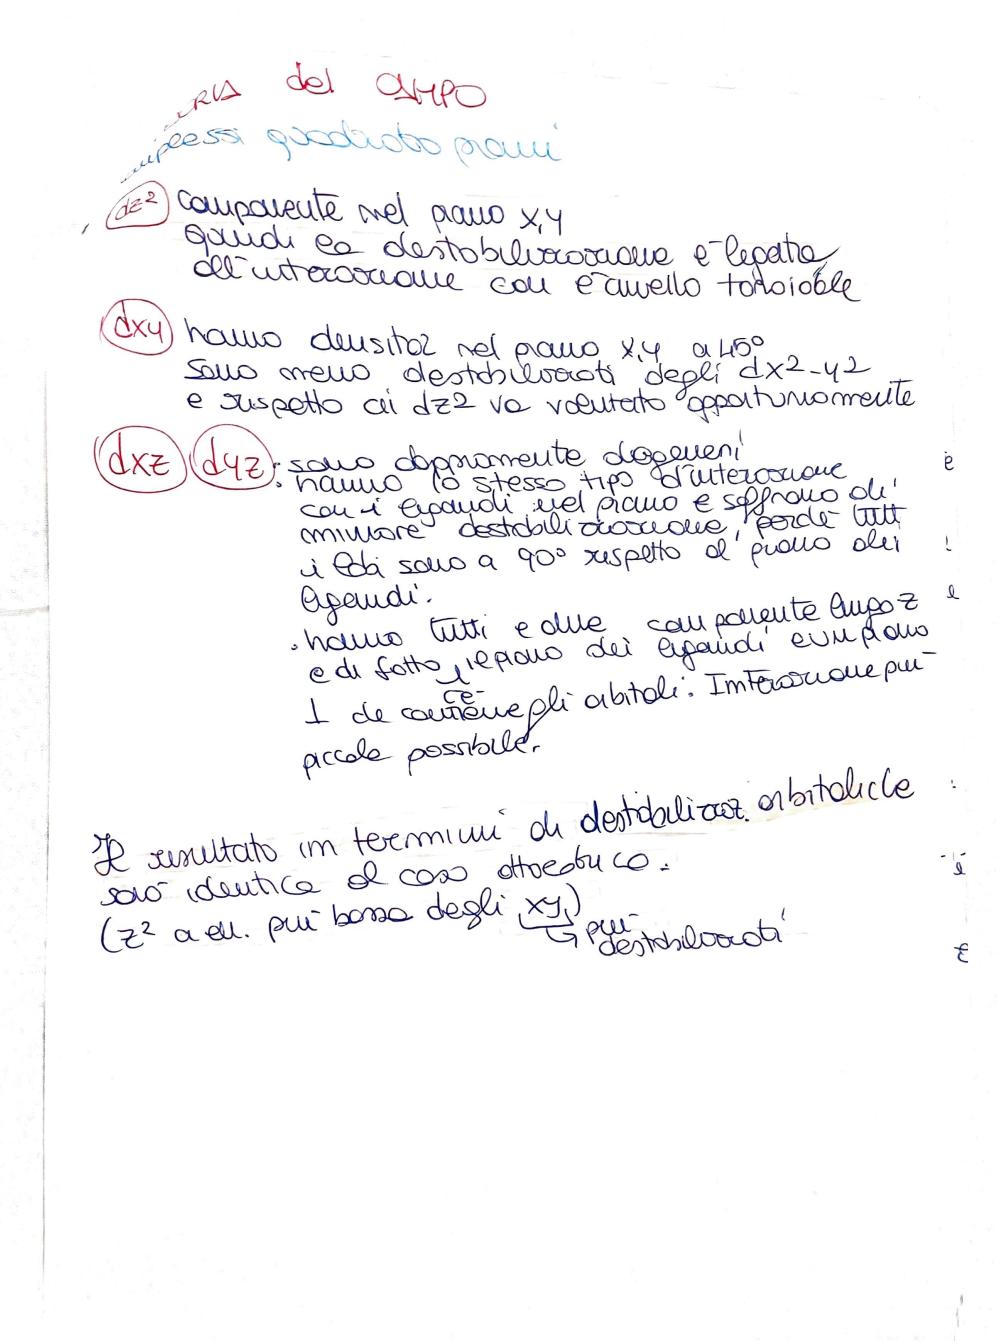 RIA del CAMPO
mplessi quadrato planari
dz2 componente nel piano x,y
quindi la destabilizzazione è legata
all'interazione con l'anello toroidale
dxy hanno densità nel piano x,y a 45°
sono meno destabilizzati degli dx2-y2
e rispetto ai dz2 va valutato opportunamente
dxz dyz: sono doppiamente degeneri
hanno lo stesso tipo d'interazione
con i leganti nel piano e soffrono di
minore destabilizzazione, perché tutti
i lobi sono a 90° rispetto al piano dei
leganti.
. hanno tutti e due componente lungo z
e di fatto, il piano dei leganti è un piano
⊥ a che contiene gli orbitali. Interazione più
piccola possibile.
Il risultato in termini di destabilizzaz. orbitaliche
sarà identica al caso ottaedrico:
(z2 a en. più bassa degli xy)
↳ più
destabilizzati